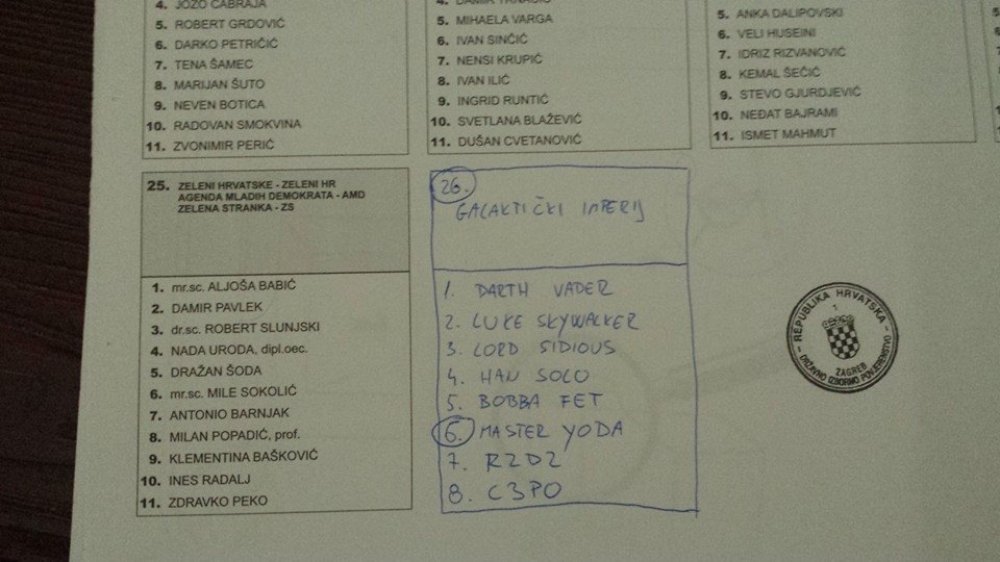 4. JOZO ČABRAJA
5. ROBERT GRDOVIĆ
6. DARKO PETRIČIĆ
7. TENA ŠAMEC
8. MARIJAN ŠUTO
9. NEVEN BOTICA
10. RADOVAN SMOKVINA
11. ZVONIMIR PERIĆ
4. DAMIR
5. MIHAELA VARGA
6. IVAN SINČIĆ
7. NENSI KRUPIĆ
8. IVAN ILIĆ
9. INGRID RUNTIĆ
10. SVETLANA BLAŽEVIĆ
11. DUŠAN CVETANOVIĆ
5. ANKA DALIPOVSKI
6. VELI HUSEINI
7. IDRIZ RIZVANOVIĆ
8. KEMAL ŠEČIĆ
9. STEVO GJURDJEVIĆ
10. NEĐAT BAJRAMI
11. ISMET MAHMUT
25. ZELENI HRVATSKE - ZELENI HR
AGENDA MLADIH DEMOKRATA - AMD
ZELENA STRANKA - ZS
1. mr.sc. ALJOŠA BABIĆ
2. DAMIR PAVLEK
3. dr.sc. ROBERT SLUNJSKI
4. NADA URODA, dipl.oec.
5. DRAŽAN ŠODA
6. mr.sc. MILE SOKOLIĆ
7. ANTONIO BARNJAK
8. MILAN POPADIĆ, prof.
9. KLEMENTINA BAŠKOVIĆ
10. INES RADALJ
11. ZDRAVKO PEKO
26.
GALAKTIČKI IMPERIJ
1. DARTH VADER
2. LUKE SKYWALKER
3. LORD SIDIOUS
4. HAN SOLO
5. BOBBA FET
6. MASTER YODA
7. R2D2
8. C3PO
REPUBLIKA HRVATSKA
1
ZAGREB
DRŽAVNO IZBORNO POVJERENSTVO